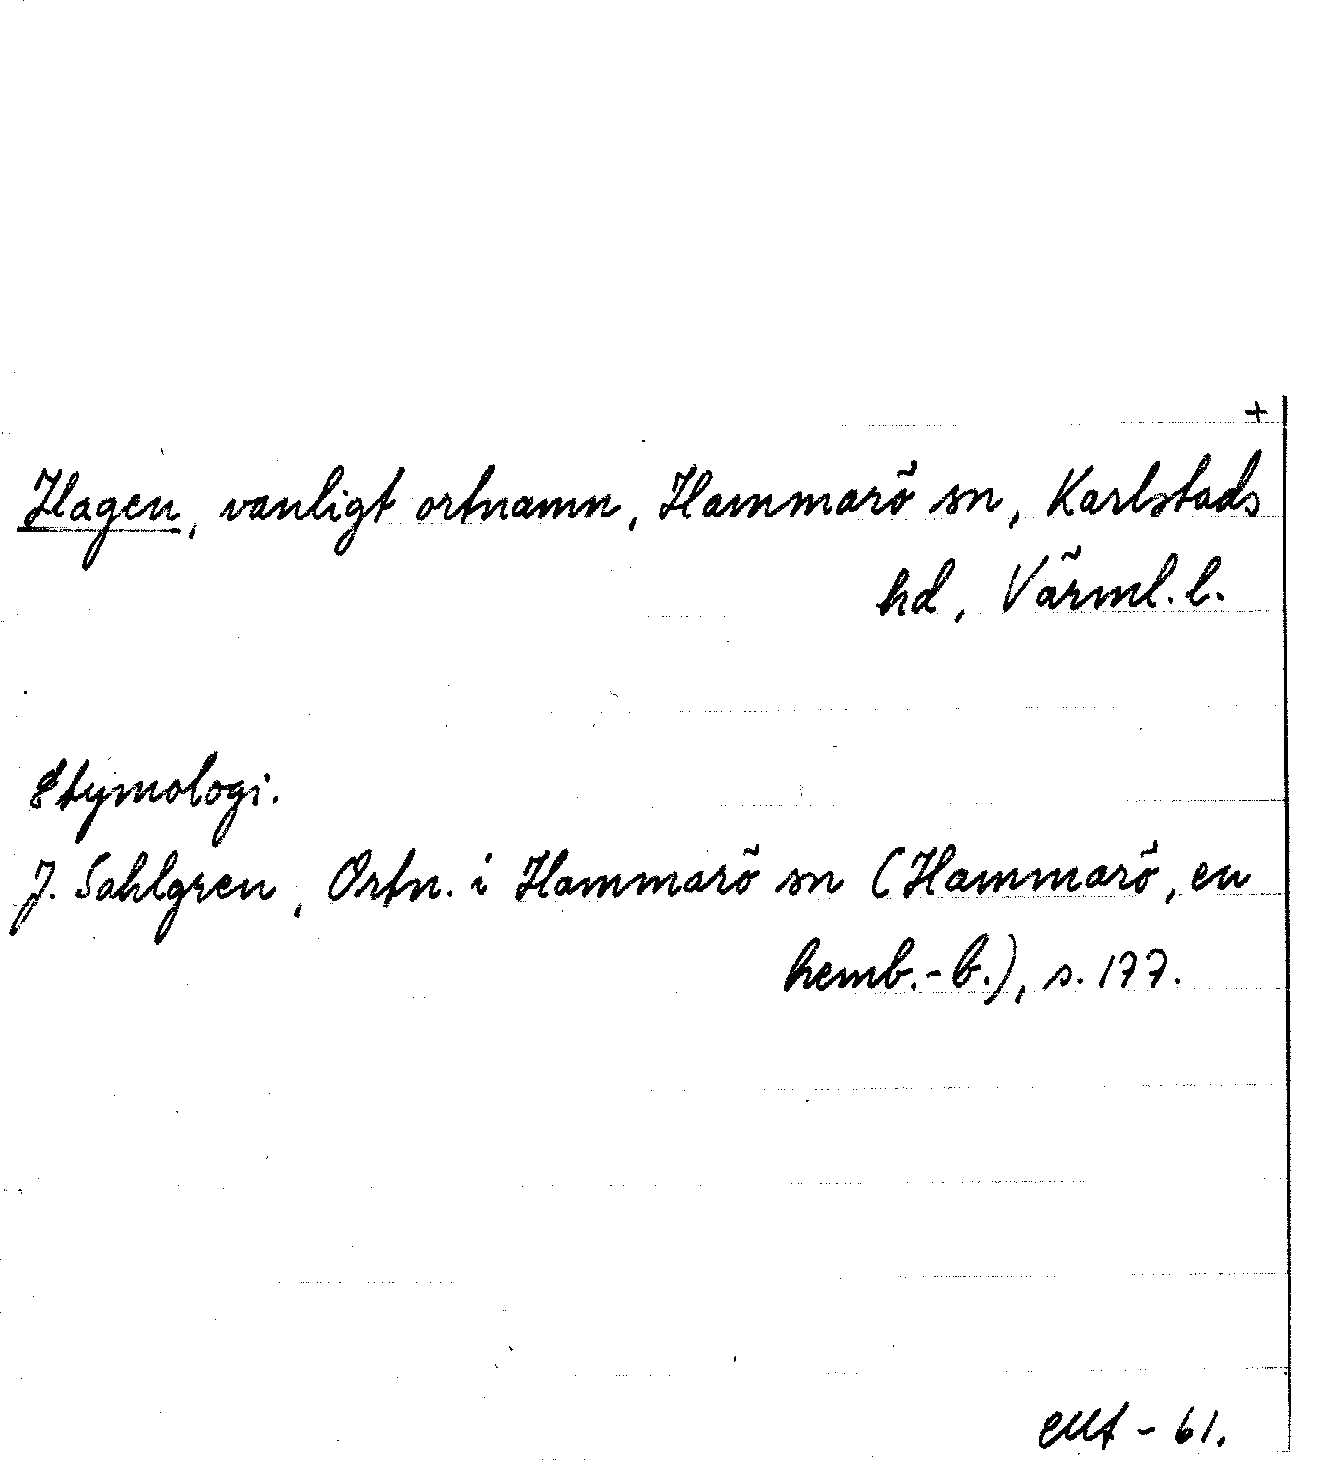 +
Hagen, vanligt ortnamn, Hammarö sn, Karlstads
hd, Värml. l.
Etymologi.
J. Sahlgren, Ortn. i Hammarö sn (Hammarö, en
hemb.-b.), s. 177.
- 61.